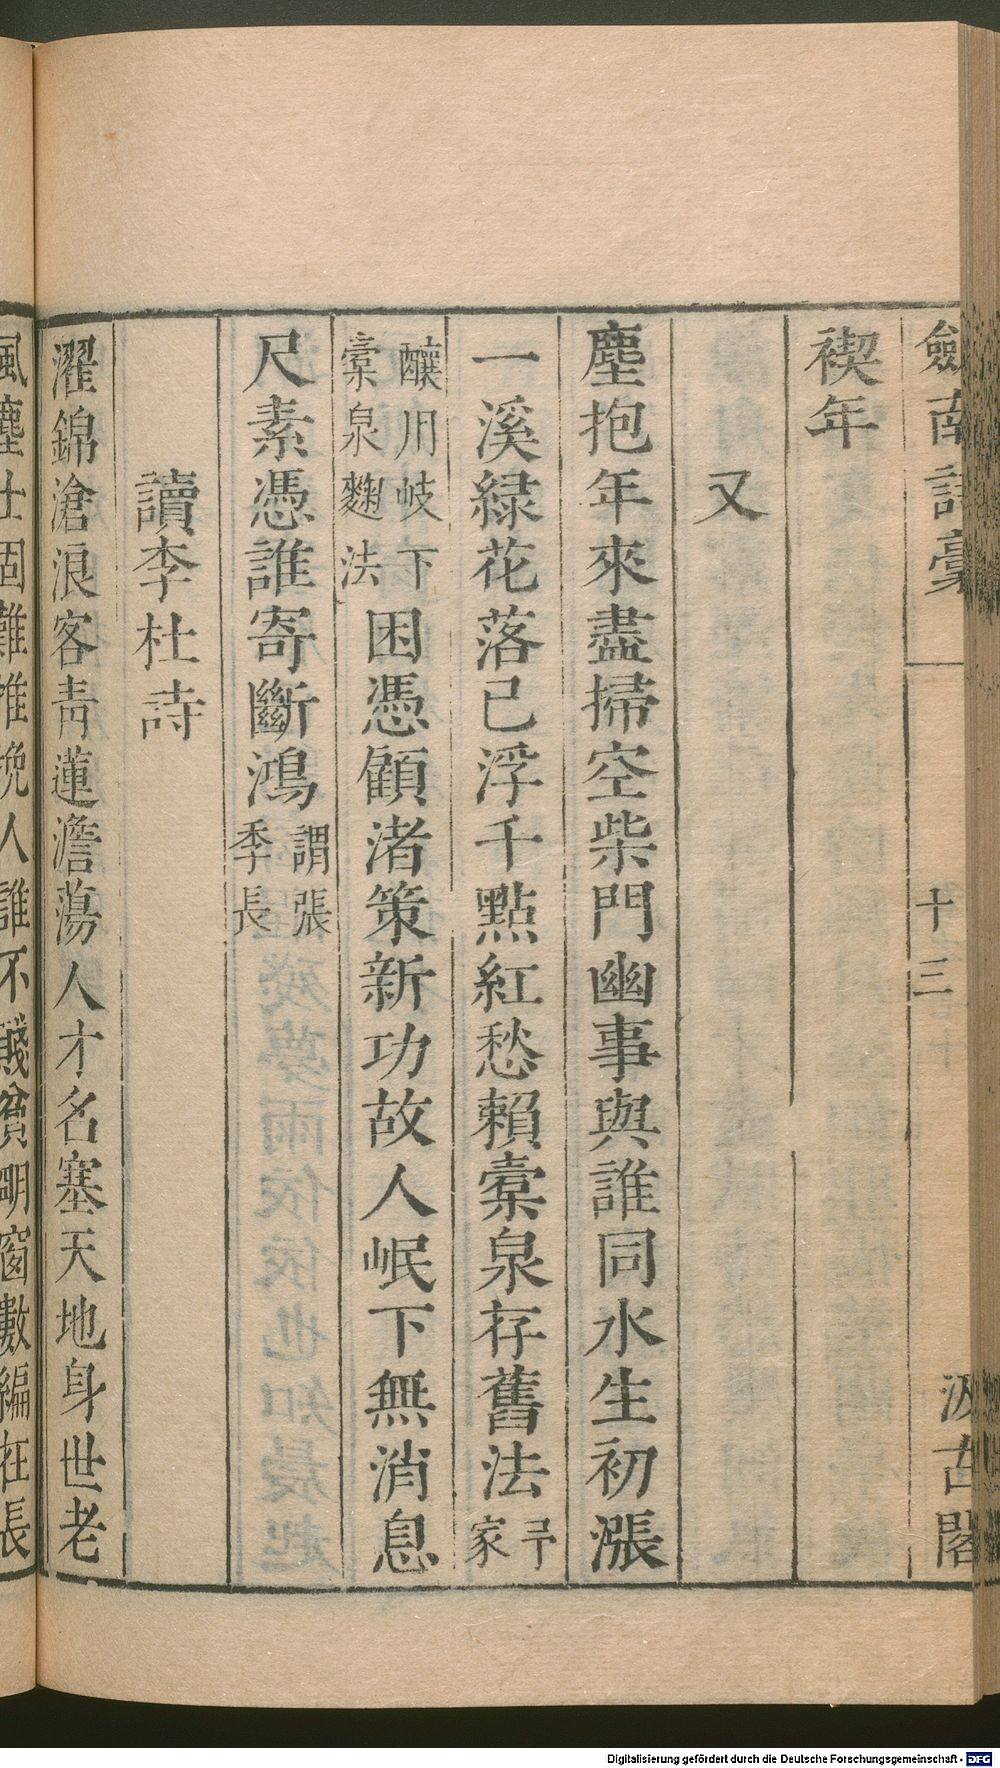 劒南詩稾
十三
汲古閣
禊年
又
塵抱年來盡掃空柴門幽事與誰同水生初漲
一溪緑花落已浮千點紅愁賴櫜泉存舊法予家
釀用岐下櫜泉麴法困憑顧渚策新功故人岷下無消息
尺素憑誰寄斷鴻謂張季長
讀李杜詩
濯錦滄浪客靑蓮澹蕩人才名塞天地身世老
風塵士固難推挽人誰不賤貧明窗數編在長
Digitalisierung gefördert durch die Deutsche Forschungsgemeinschaft - DFG